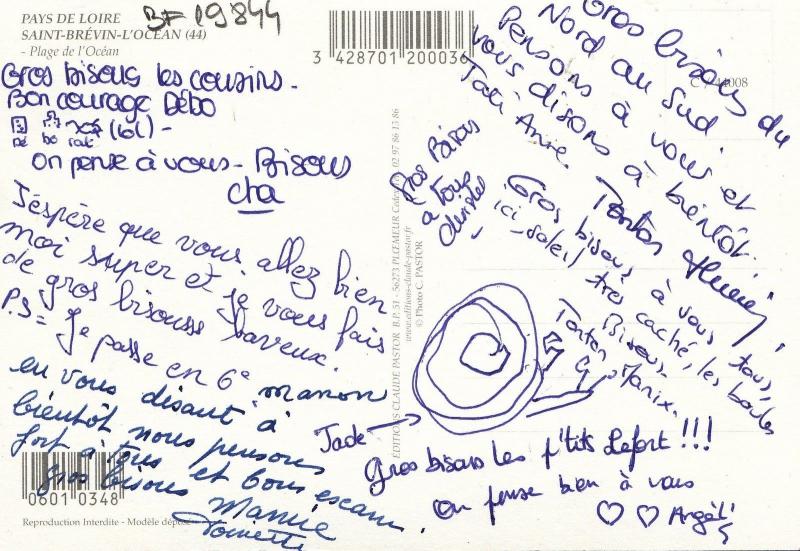 PAYS DE LOIRE
SAINT-BRÉVIN-L'OCÉAN (44)
- Plage de l'Océan
BF 19844
3 428701 200036
C 44008
Gros bisous les cousins -
Bon courage Débo
Dé bo rat (lol) -
On pense à vous - Bisous
Cha
J'éspère que vous allez bien
moi super et je vous fais
de gros bisouss baveux.
P.S = Je passe en 6e manon
en vous disant à
bientôt nous pensons
fort à tous et bons
gros bisous Mamie
0601 0348
Reproduction Interdite - Modèle déposé
ÉDITIONS CLAUDE PASTOR B.P. 51 - 56273 PLŒMEUR Cedex 02 97 86 13 86
www.editions-claude-pastor.fr
© Photo C. PASTOR
Gros bisous du
Nord au Sud.
Pensons à vous et
vous disons à bientôt.
Tati Anne. Tonton
Gros Bisous
a tous
Gros bisous à vous tous,
ici soleil très caché, les boules
Bisous.
Tonton Manix.
Jade
Gros bisous les p'tits Lefort !!!
On pense bien à vous
♡ ♡ Angél